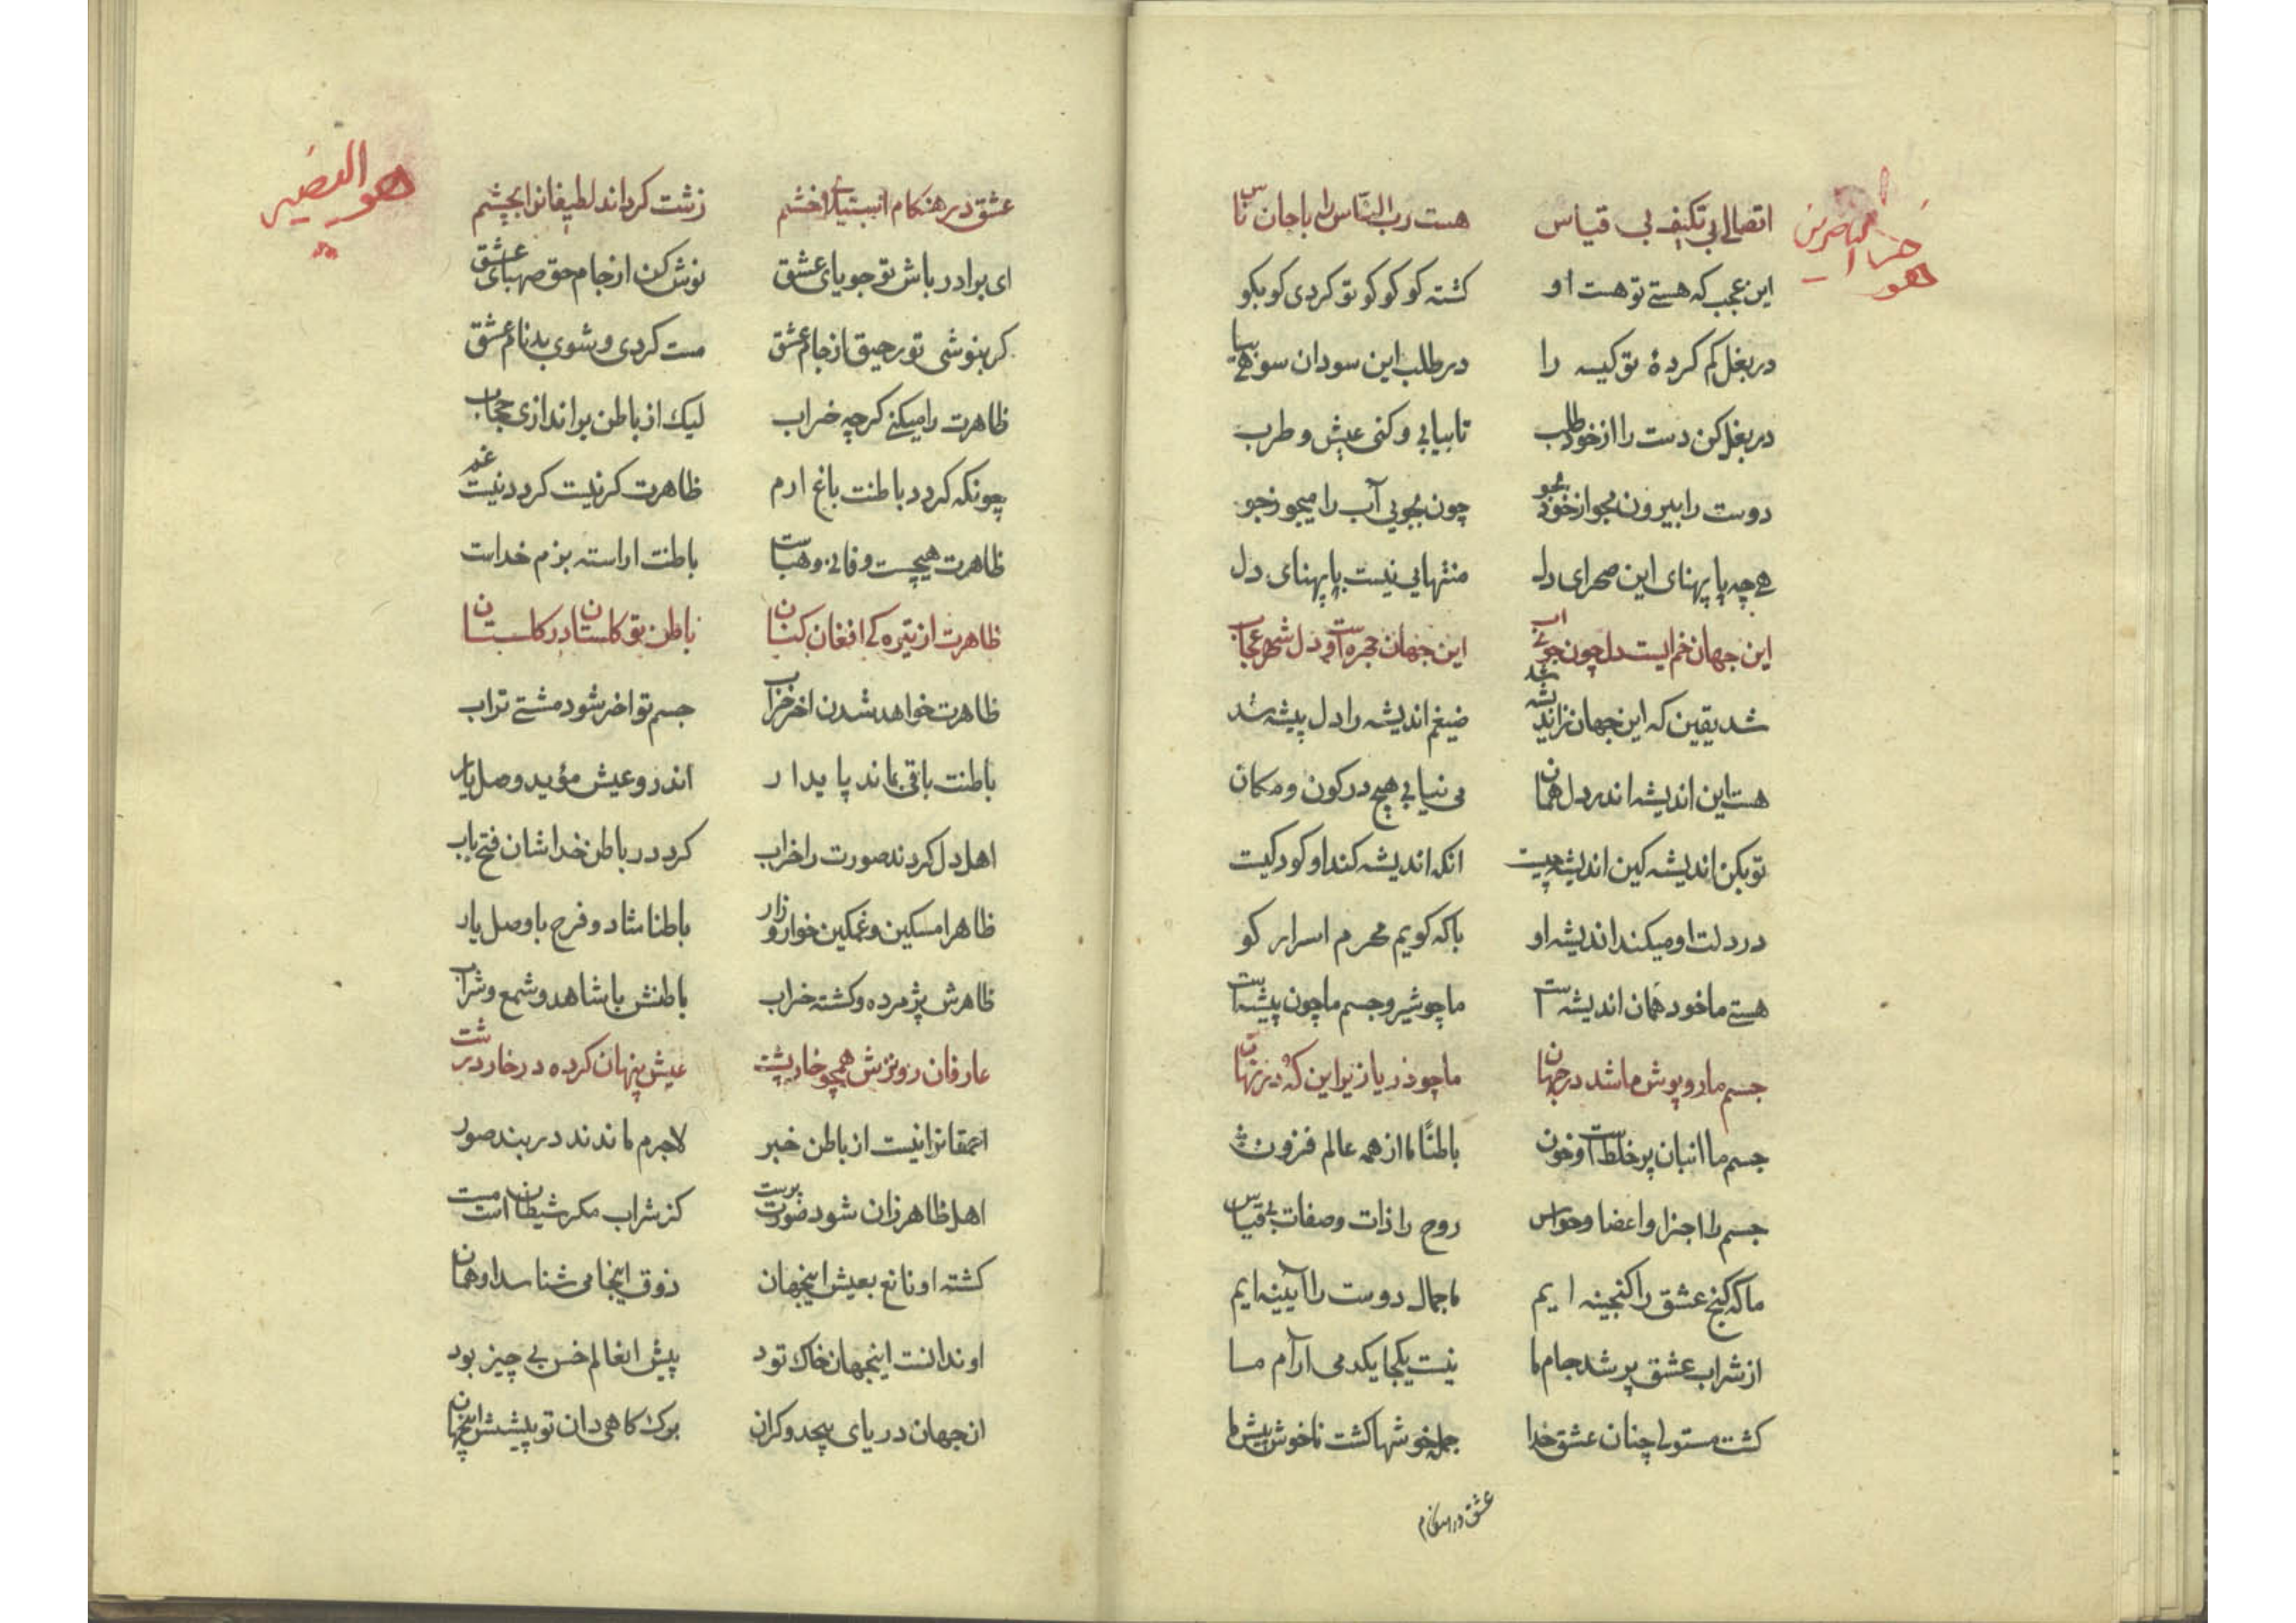 هو خیر الناصرین
اتصالی بی تکیف بی قیاس هست رب الناس را با جان ناس
این عجب که هستی تو هست او کشته کو کو کو کو تو کردی کو بکو
در بغل کم کردهٔ تو کیسه را در طلب این سو دان سو
در بغل کن دست را از خود طلب تا بیابی و کنی عیش و طرب
دوست را بیرون مجو از خود بجو چون بجویی آب را میجو ز جو
هی چه پا پهنای این صحرای دل منتهایی نیست با پهنای دل
این جهان خم ایست دل چون جوی آب این جهان حجره است و دل شهر عجاب
شد یقین که این جهان ز اندیشه شد ضیغم اندیشه را دل پیشه شد
هست این اندیشه اندر دل همان می نیابی هیچ در کون و مکان
تو بکن اندیشه کین اندیشه چیست انکه اندیشه کند او کو دکیت
در دلت او میکند اندیشه او با که کویم محرم اسرار کو
هستی ما خود همان اندیشه است ما چو شیر و جسم ما چون پیشه است
جسم ما رو پوش ما شد در جهان ما چو دریا زیر این که در نهان
جسم ما انبان پر خلط است و خون باطنا ما از همه عالم فزون
جسم را اجزا و اعضا و حواس روح را ذات و صفات بی قیاس
ما که کنج عشق را کنجینه ایم ما جمال دوست را آیینه ایم
از شراب عشق پر شد جام ما نیست یکجا یکدمی آرام ما
کشت مستولی چنان عشق خدا جمله خوشها کشت ناخوش پیش ما
عشق در هنکام
هو النصیر
عشق در هنکام استیلا و خشم زشت کرداند لطیفانرا بچشم
ای برادر باش تو جویای عشق نوش کن از جام حق صهبای عشق
کر بنوشی تو رحیق از جام عشق مست کردی و شوی بدنام عشق
ظاهرت را میکنی کرچه خراب لیک از باطن بر اندازی حجاب
چونکه کردد باطنت باغ ارم ظاهرت کر نیست کردد نیست غم
ظاهرت هیچست و فانی و هباست باطنت اراسته بزم خداست
ظاهرت از تیره کی افغان کنان باطن تو کلستان در کلستان
ظاهرت خواهد شدن اخر خراب جسم تو اخر شود مشتی تراب
باطنت باقی بماند پایدار اندر و عیش مؤید وصل یار
اهل دل کردند صورت را خراب کرد در باطن خداشان فتح باب
ظاهرا مسکین و غمکین خوار و زار باطنا شاد و فرح با وصل یار
ظاهرش پژمرده و کشته خراب باطنش با شاهد و شمع و شراب
عارفان رو ترش همچو خارپشت عیش پنهان کرده در خار درشت
احمقانرا نیست از باطن خبر لاجرم ماندند در بند صور
اهل ظاهر زان شود صورت پرست کز شراب مکر شیطان است مست
کشته او قانع بعیش اینجهان ذوق اینجا می شناسد او همان
او ندانست اینجهان خاک تود پیش انعالم خس بی چیز بود
ان جهان دریای بیحد و کران برک کاهی دان تو پیشش اینجهان